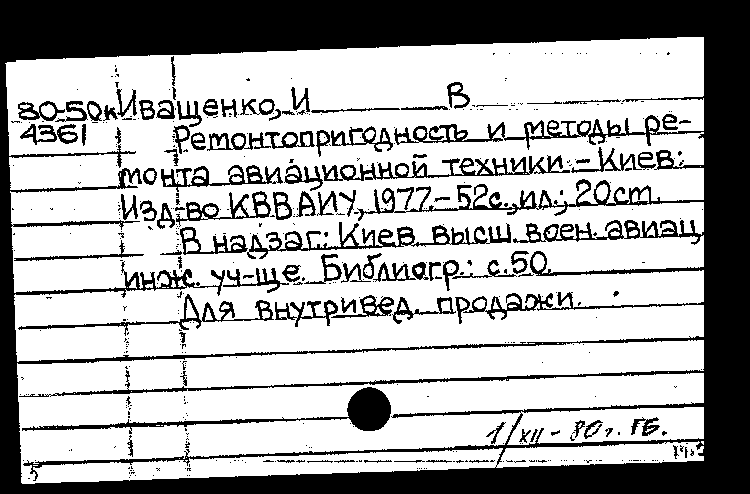 80-50к Иващенко, И В
4361 Ремонтопригодность и методы ре-
монта авиационной техники. – Киев:
Изд-во КВВАИУ, 1977. – 52с., ил.; 20cm.
В надзаг.: Киев. высш. воен. авиац.
инж. уч-ще. Библиогр.: с.50.
Для внутривед. продажи.
1/XII - 80г. ГБ.
5